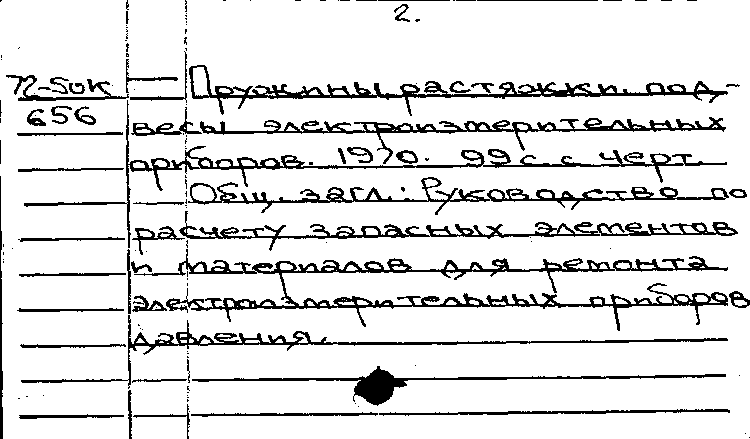 2.
72-50к — Пружины, растяжки. под-
656 весы электроизмерительных
приборов. 1970. 99 с. с черт.
Общ. загл.: Руководство по
расчету запасных элементов
и материалов для ремонта
электроизмерительных приборов
давления.